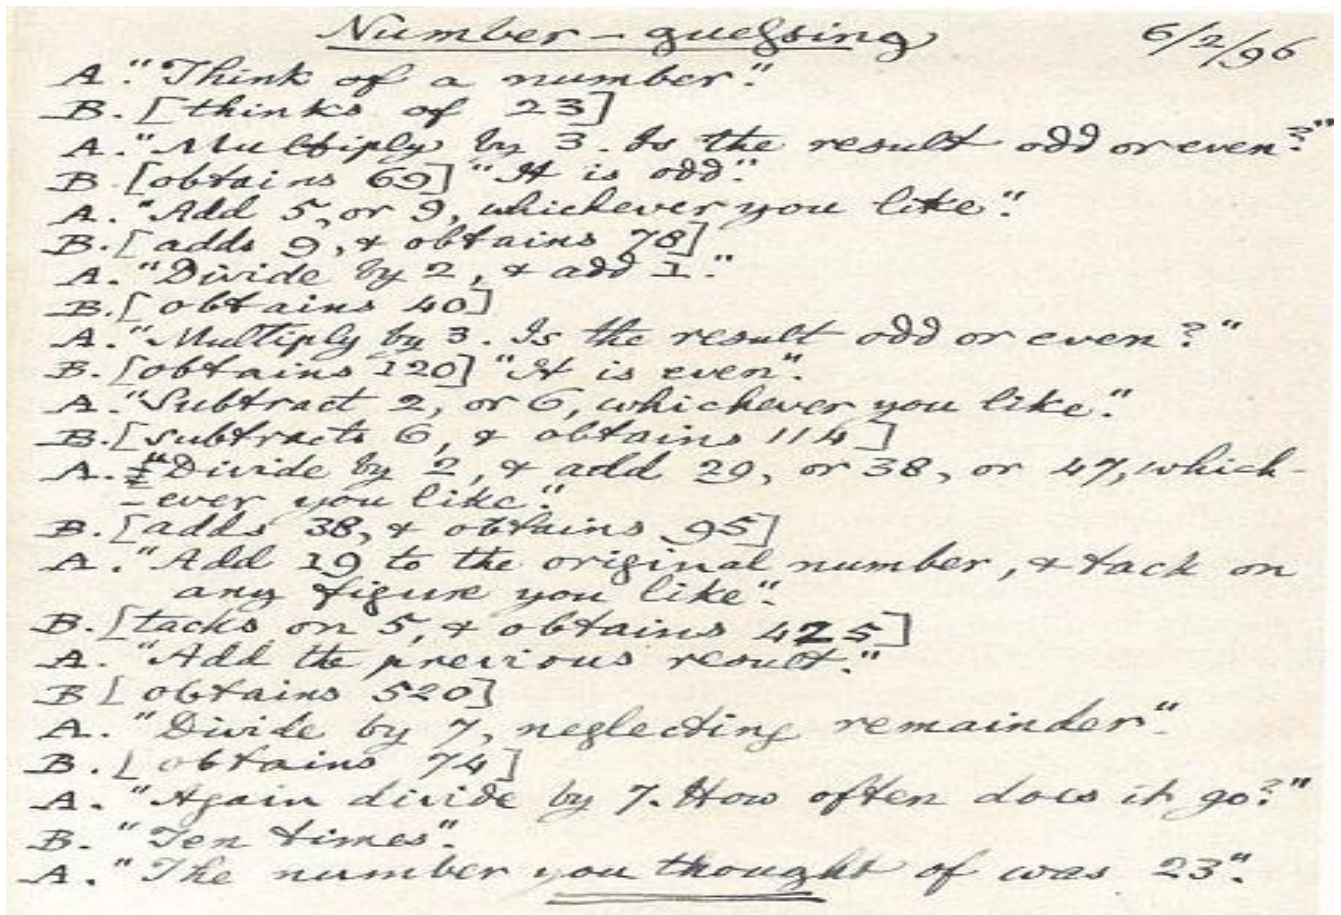 Number - guessing 6/2/96
A. "Think of a number."
B. [thinks of 23]
A. "Multiply by 3. Is the result odd or even?"
B. [obtains 69] "It is odd."
A. "Add 5, or 9, whichever you like".
B. [adds 9, & obtains 78]
A. "Divide by 2, & add 1."
B. [obtains 40]
A. "Multiply by 3. Is the result odd or even?"
B. [obtains 120] "It is even".
A. "Subtract 2, or 6, whichever you like."
B. [subtracts 6, & obtains 114]
A. "Divide by 2, & add 29, or 38, or 47, which-
-ever you like."
B. [adds 38, & obtains 95]
A. "Add 19 to the original number, & tack on
any figure you like".
B. [tacks on 5, & obtains 425]
A. "Add the previous result."
B [obtains 520]
A. "Divide by 7, neglecting remainder".
B. [obtains 74]
A. "Again divide by 7. How often does it go?"
B. "Ten times".
A. "The number you thought of was 23".